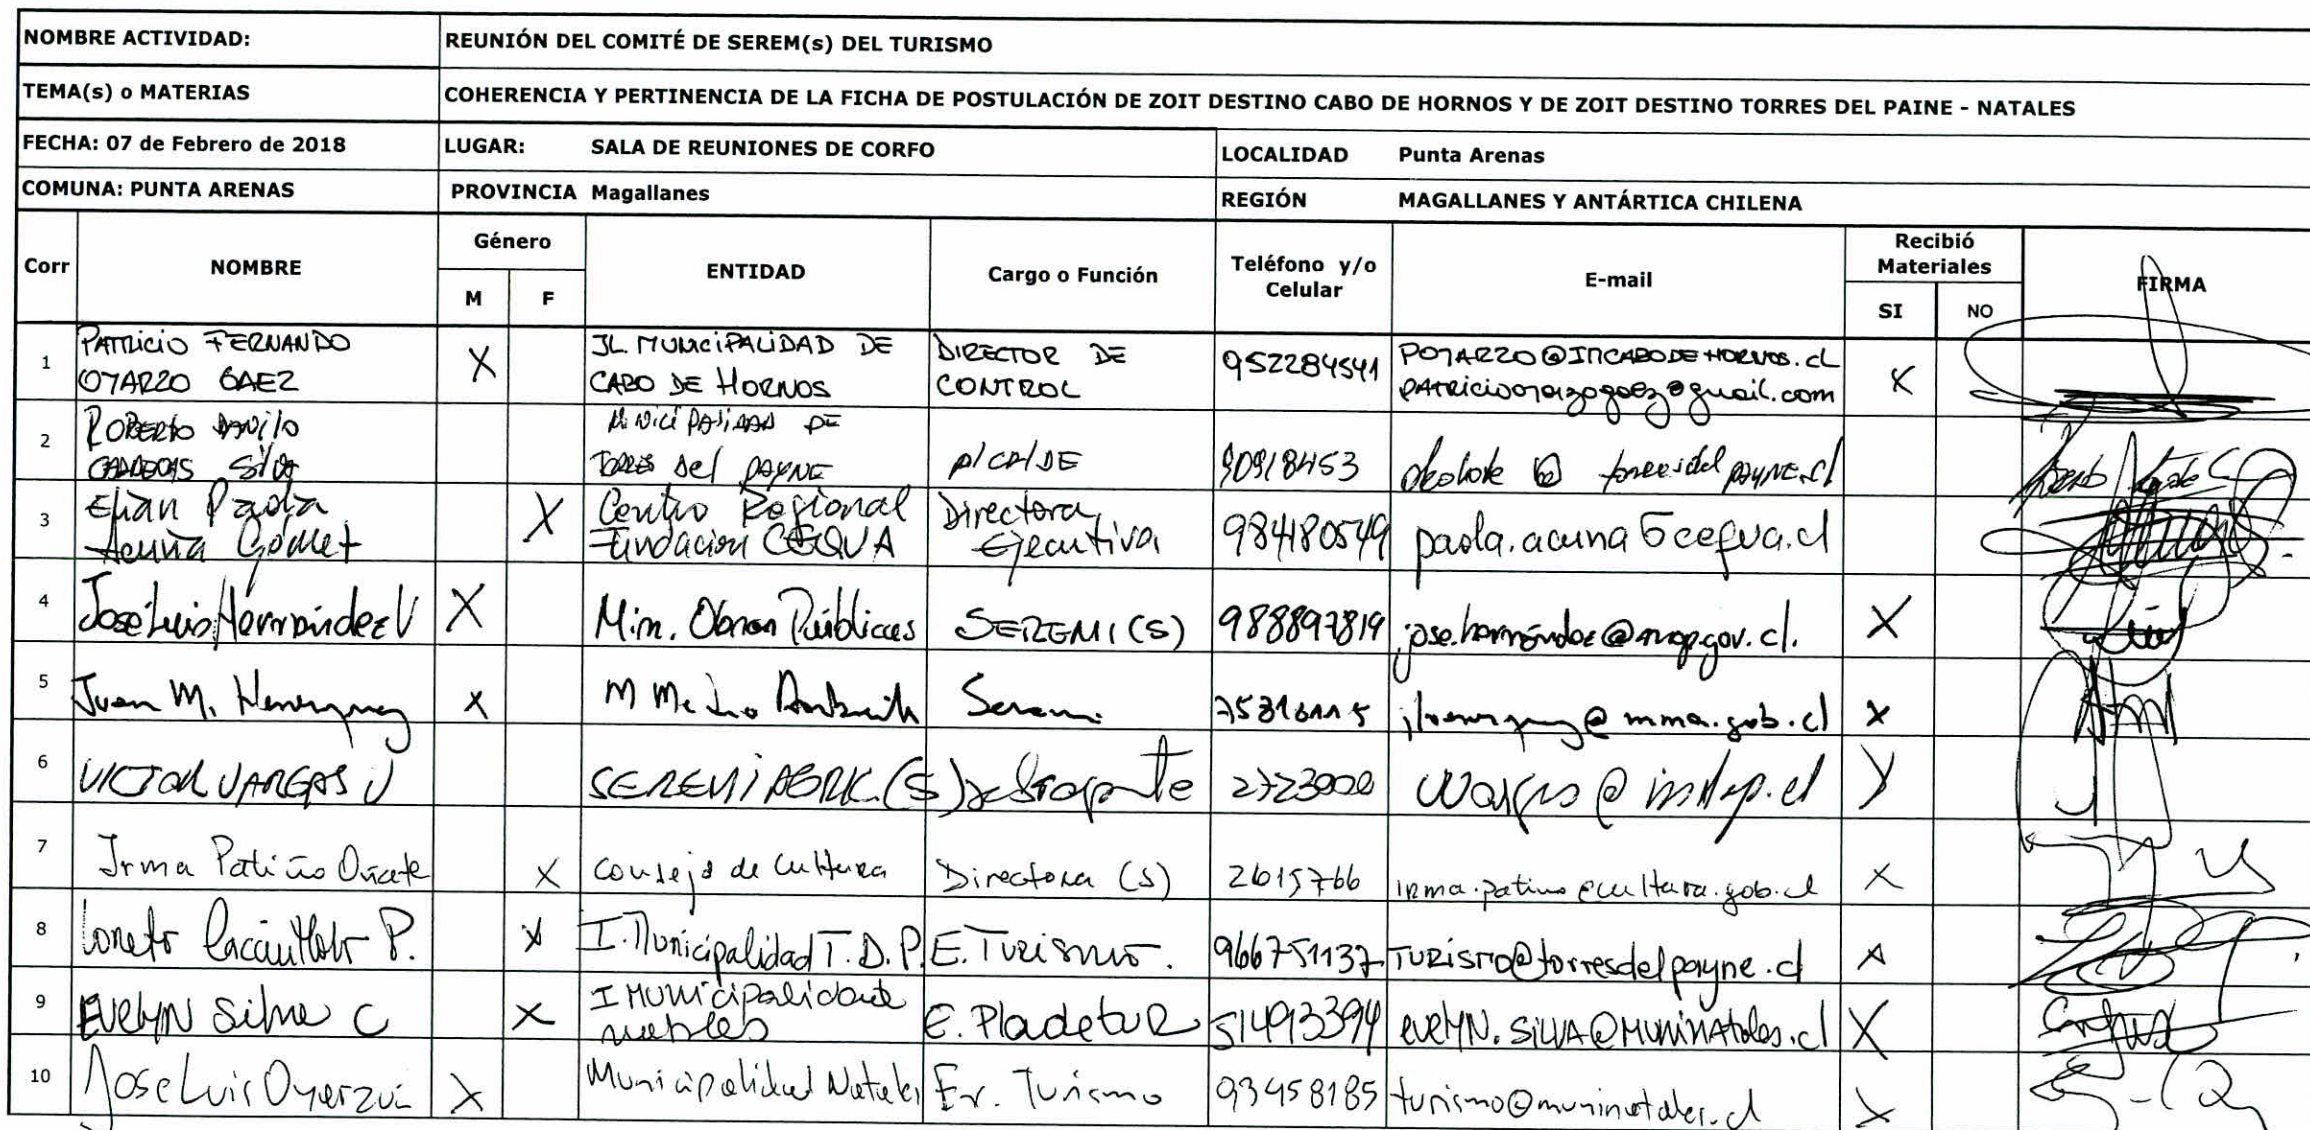 NOMBRE ACTIVIDAD: REUNIÓN DEL COMITÉ DE SEREM(s) DEL TURISMO
TEMA(s) o MATERIAS COHERENCIA Y PERTINENCIA DE LA FICHA DE POSTULACIÓN DE ZOIT DESTINO CABO DE HORNOS Y DE ZOIT DESTINO TORRES DEL PAINE - NATALES
FECHA: 07 de Febrero de 2018 LUGAR: SALA DE REUNIONES DE CORFO LOCALIDAD Punta Arenas
COMUNA: PUNTA ARENAS PROVINCIA Magallanes REGIÓN MAGALLANES Y ANTÁRTICA CHILENA
Corr NOMBRE Género ENTIDAD Cargo o Función Teléfono y/o Celular E-mail Recibió Materiales FIRMA
M F SI NO
1 PATRICIO FERNANDO JL. MUNICIPALIDAD DE DIRECTOR DE
OYARZO GAEZ X CABO DE HORNOS CONTROL 952284541 POYARZO@IMCABODEHORNOS.cl X
patriciooyarzogaez@gmail.com
2 ROBERTO MUNICIPALIDAD DE
Silva TORRES del PAYNE AlCAlDE 90918453 torresdelpayne.cl
3 Paola X Centro Regional Directora
Acuña Gómez Fundación CEQUA Ejecutiva 984180549 paola.acuna@cequa.cl
4 José Luis Hernández V X Min. Obras Públicas SEREMI (S) 988897819 jose.hernández@mop.gov.cl. X
5 Juan M. Henriquez X M Medio Ambiente Seremi @mma.gob.cl X
6 VICTOR VARGAS V SEREMI AGRIC. (S) 2723000 vvargas@indap.cl
7 Irma Patiño Oñate X Consejo de Cultura Directora (S) 2615766 irma.patino@cultura.gob.cl X
8 Loreto P. X I. Municipalidad T.D.P. E. Turismo. 966751137 TURISMO@torresdelpayne.cl X
9 Evelyn Silva C X I Municipalidad Natales E. Pladetur 51493394 evelyn.silva@muninatales.cl X
10 Jose Luis Oyarzún X Municipalidad Natales Er. Turismo 93458185 turismo@muninatales.cl X